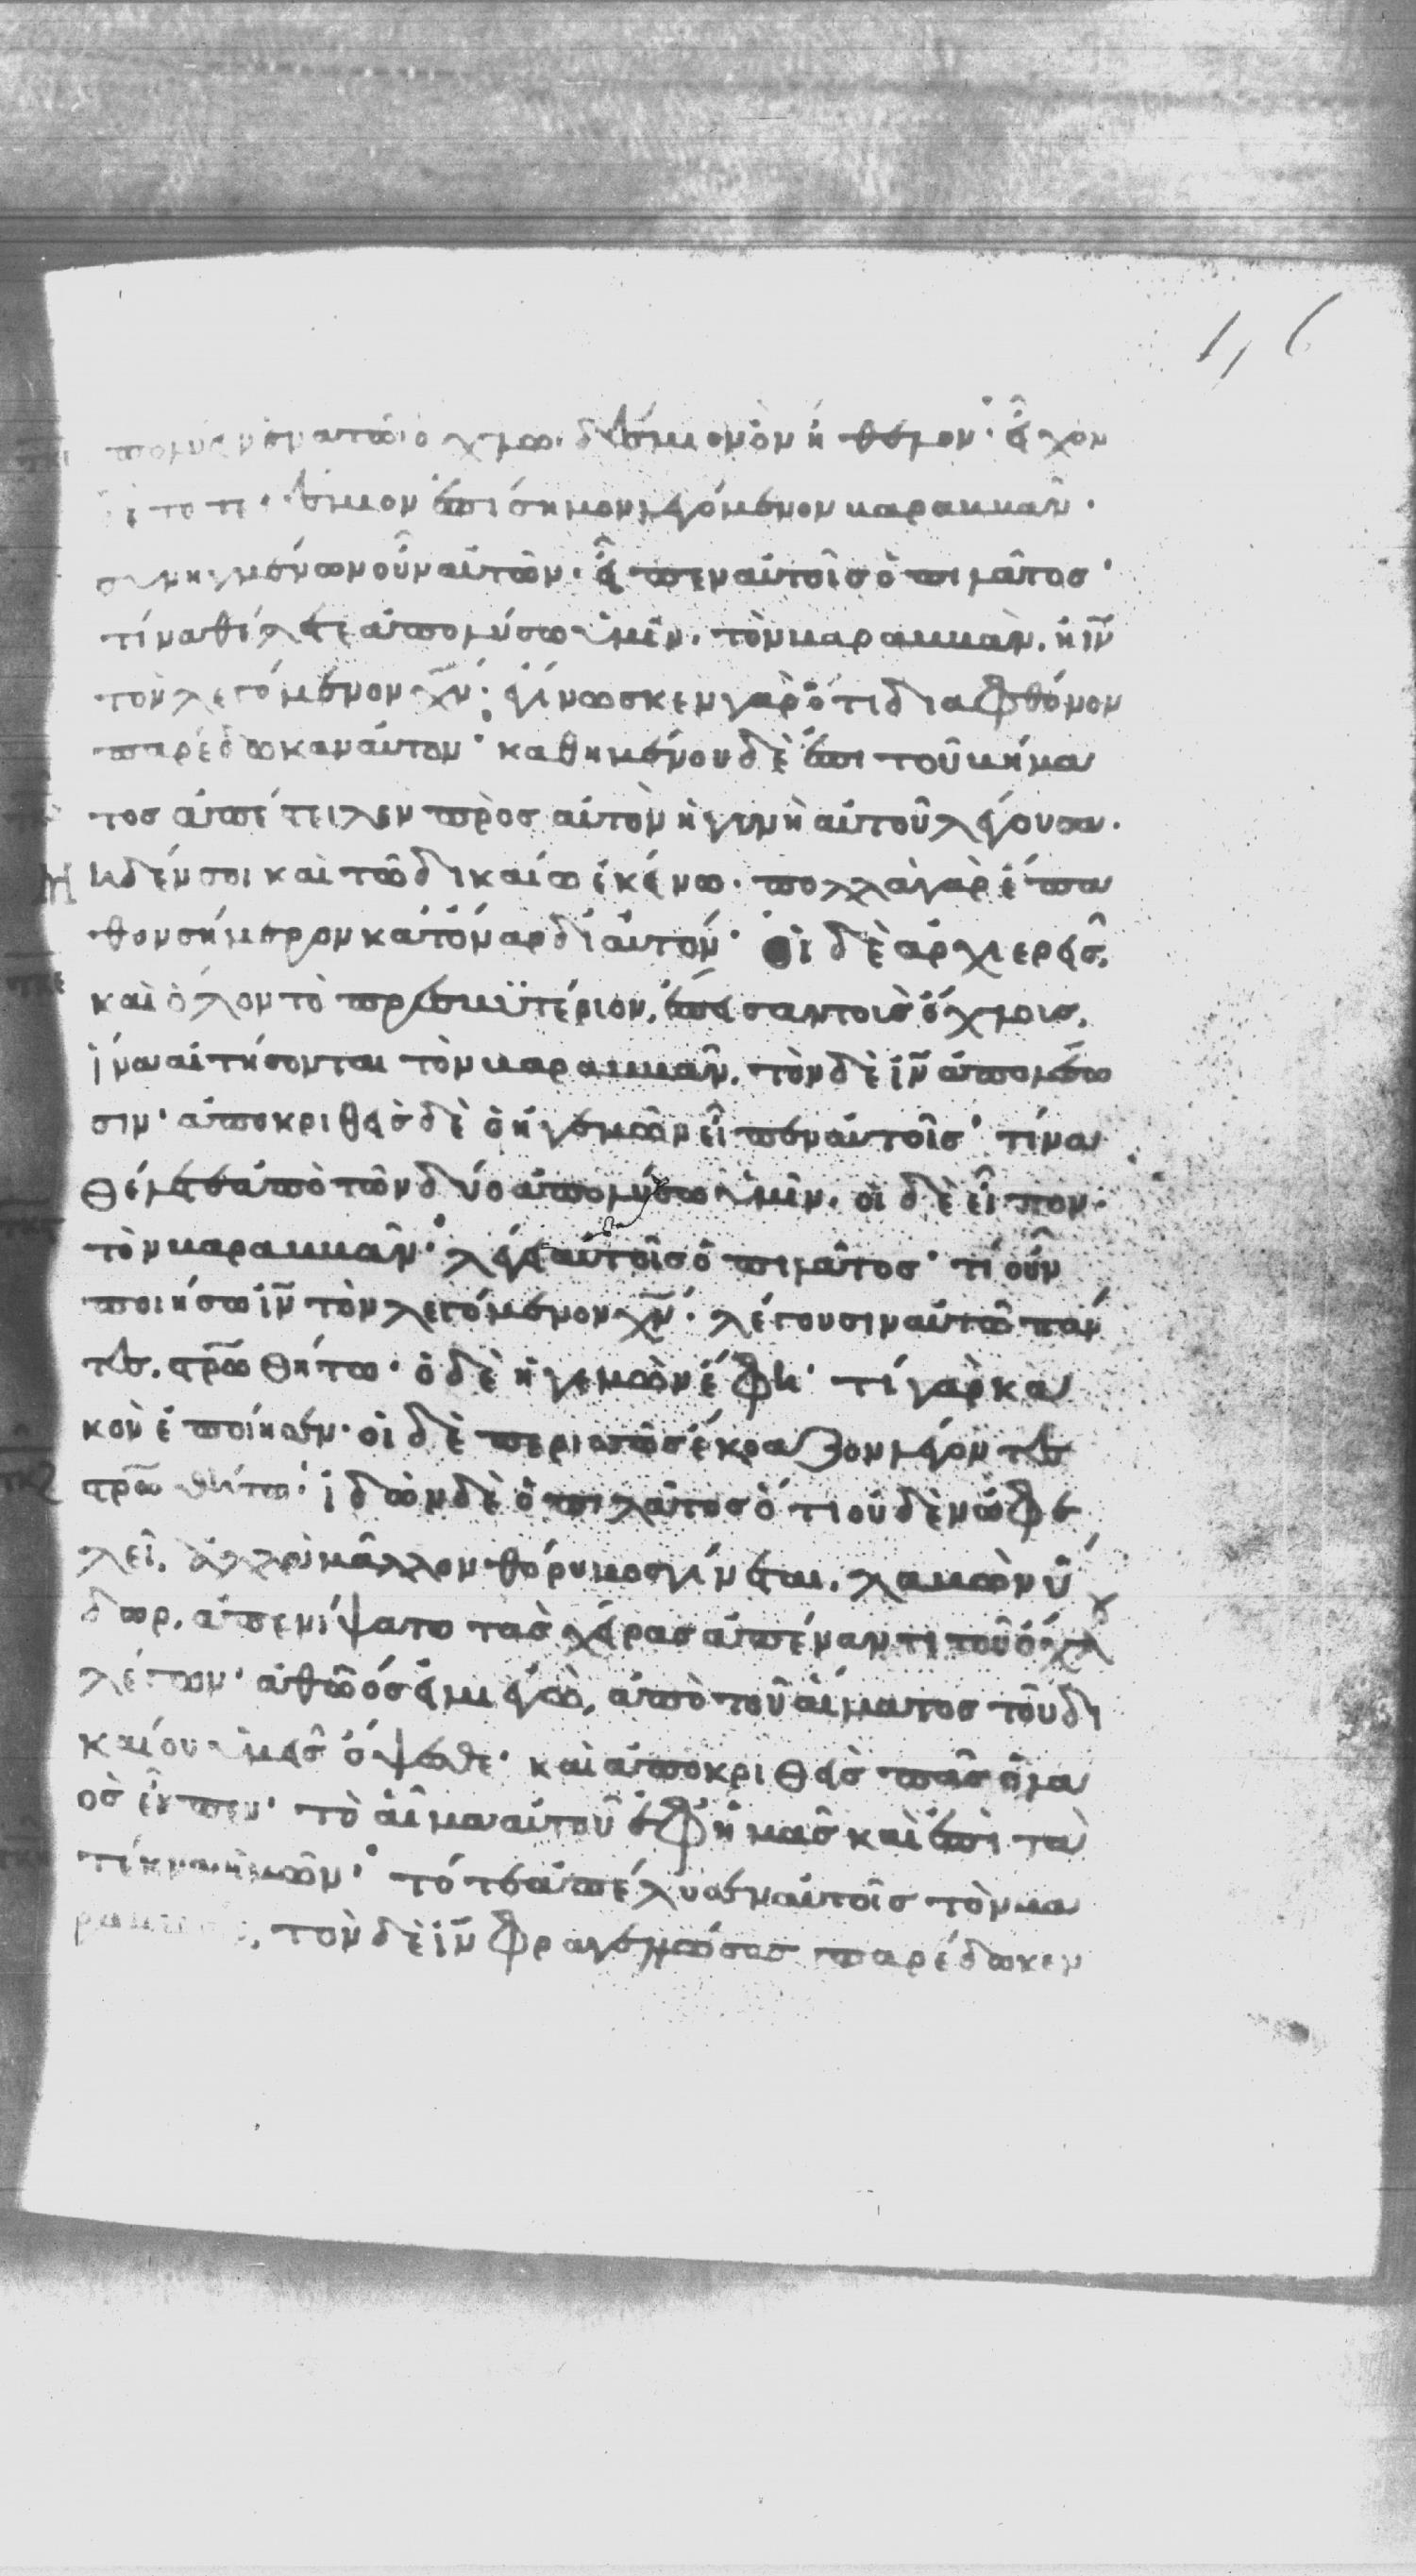 116
πολύειν ἕνα τῶ ὄχλω. δέσμιον ὃν ἤθελον· εἶχον
δὲ τότε δέσμιον ἐπίσημον λεγόμενον βαραββᾶν·
συνηγμένων οὖν αὐτῶν· εἶπεν αὐτοῖσ ὁ πιλᾶτοσ·
τίνα θέλετε ἀπολύσω ὑμῖν. τὸν βαραββὰν. ἢ ιν
τὸν λεγόμενον χν· ἐγίνωσκεν γὰρ ὅτι δια φθόνον
παρέδωκαν αὐτον· καθημένου δὲ ἐπι τοῦ βήμα
τοσ ἀπέστειλεν πρὸσ αὐτὸν ἡ γυνὴ αὐτοῦ λέγουσα·
Μηδέν σοι καὶ τῶ δικαίω ἐκείνω· πολλὰ γὰρ ἔπα
θον σήμερον κατ' ὄναρ δι αὐτόν· Οἱ δὲ ἀρχιερεῖσ,
καὶ ὅλον τὸ πρεσβϋτέριον, ἔπεισαν τοισ ὄχλοισ,
ἵνα αἰτήσονται τὸν βαραββᾶν, τὸν δὲ ιν ἀπολέσω
σιν· ἀποκριθεὶσ δὲ ὁ ἡγεμὼν εἶπεν αὐτοῖσ· τίνα
θέλετε ἀπὸ τῶν δύο ἀπολύσω ὑμῖν. οἱ δὲ εἶπον·
τὸν βαραββᾶν· λέγει αὐτοῖσ ὁ πιλᾶτοσ· τί οὖν
ποιήσω ιν τὸν λεγόμενον χν· λέγουσιν αὐτῶ πάν
τεσ. στρωθήτω· ὁ δὲ ἡγεμὼν ἔφη· τί γὰρ κα
κὸν ἐποίησεν· οἱ δὲ περισσῶσ ἔκραζον λέγοντεσ
στρωθήτω· ἰδὼν δὲ ὁ πιλᾶτοσ ὅτι οὐδὲν ὠφε
λεῖ, ἀλλὰ μᾶλλον θόρυβοσ γίνεται, λαβὼν ὕ
δωρ, ἀπενίψατο τὰσ χεῖρασ ἀπέναντι τοῦ ὄχλου
λέγων· ἀθῶόσ εἰμι ἐγὼ, ἀπὸ τοῦ αἵματοσ τοῦ δι
καίου ὑμεῖσ ὄψεσθε· καὶ ἀποκριθεὶσ πᾶσ ὁ λα
ὸσ εἶπεν· τὸ αἷμα αὐτοῦ ἐφ ἡμᾶσ καὶ ἐπὶ τὰ
τέκνα ἡμῶν· τότε ἀπέλυσεν αὐτοῖσ τὸν βα
ραββᾶν, τὸν δὲ ιν φραγελλώσασ παρέδωκεν